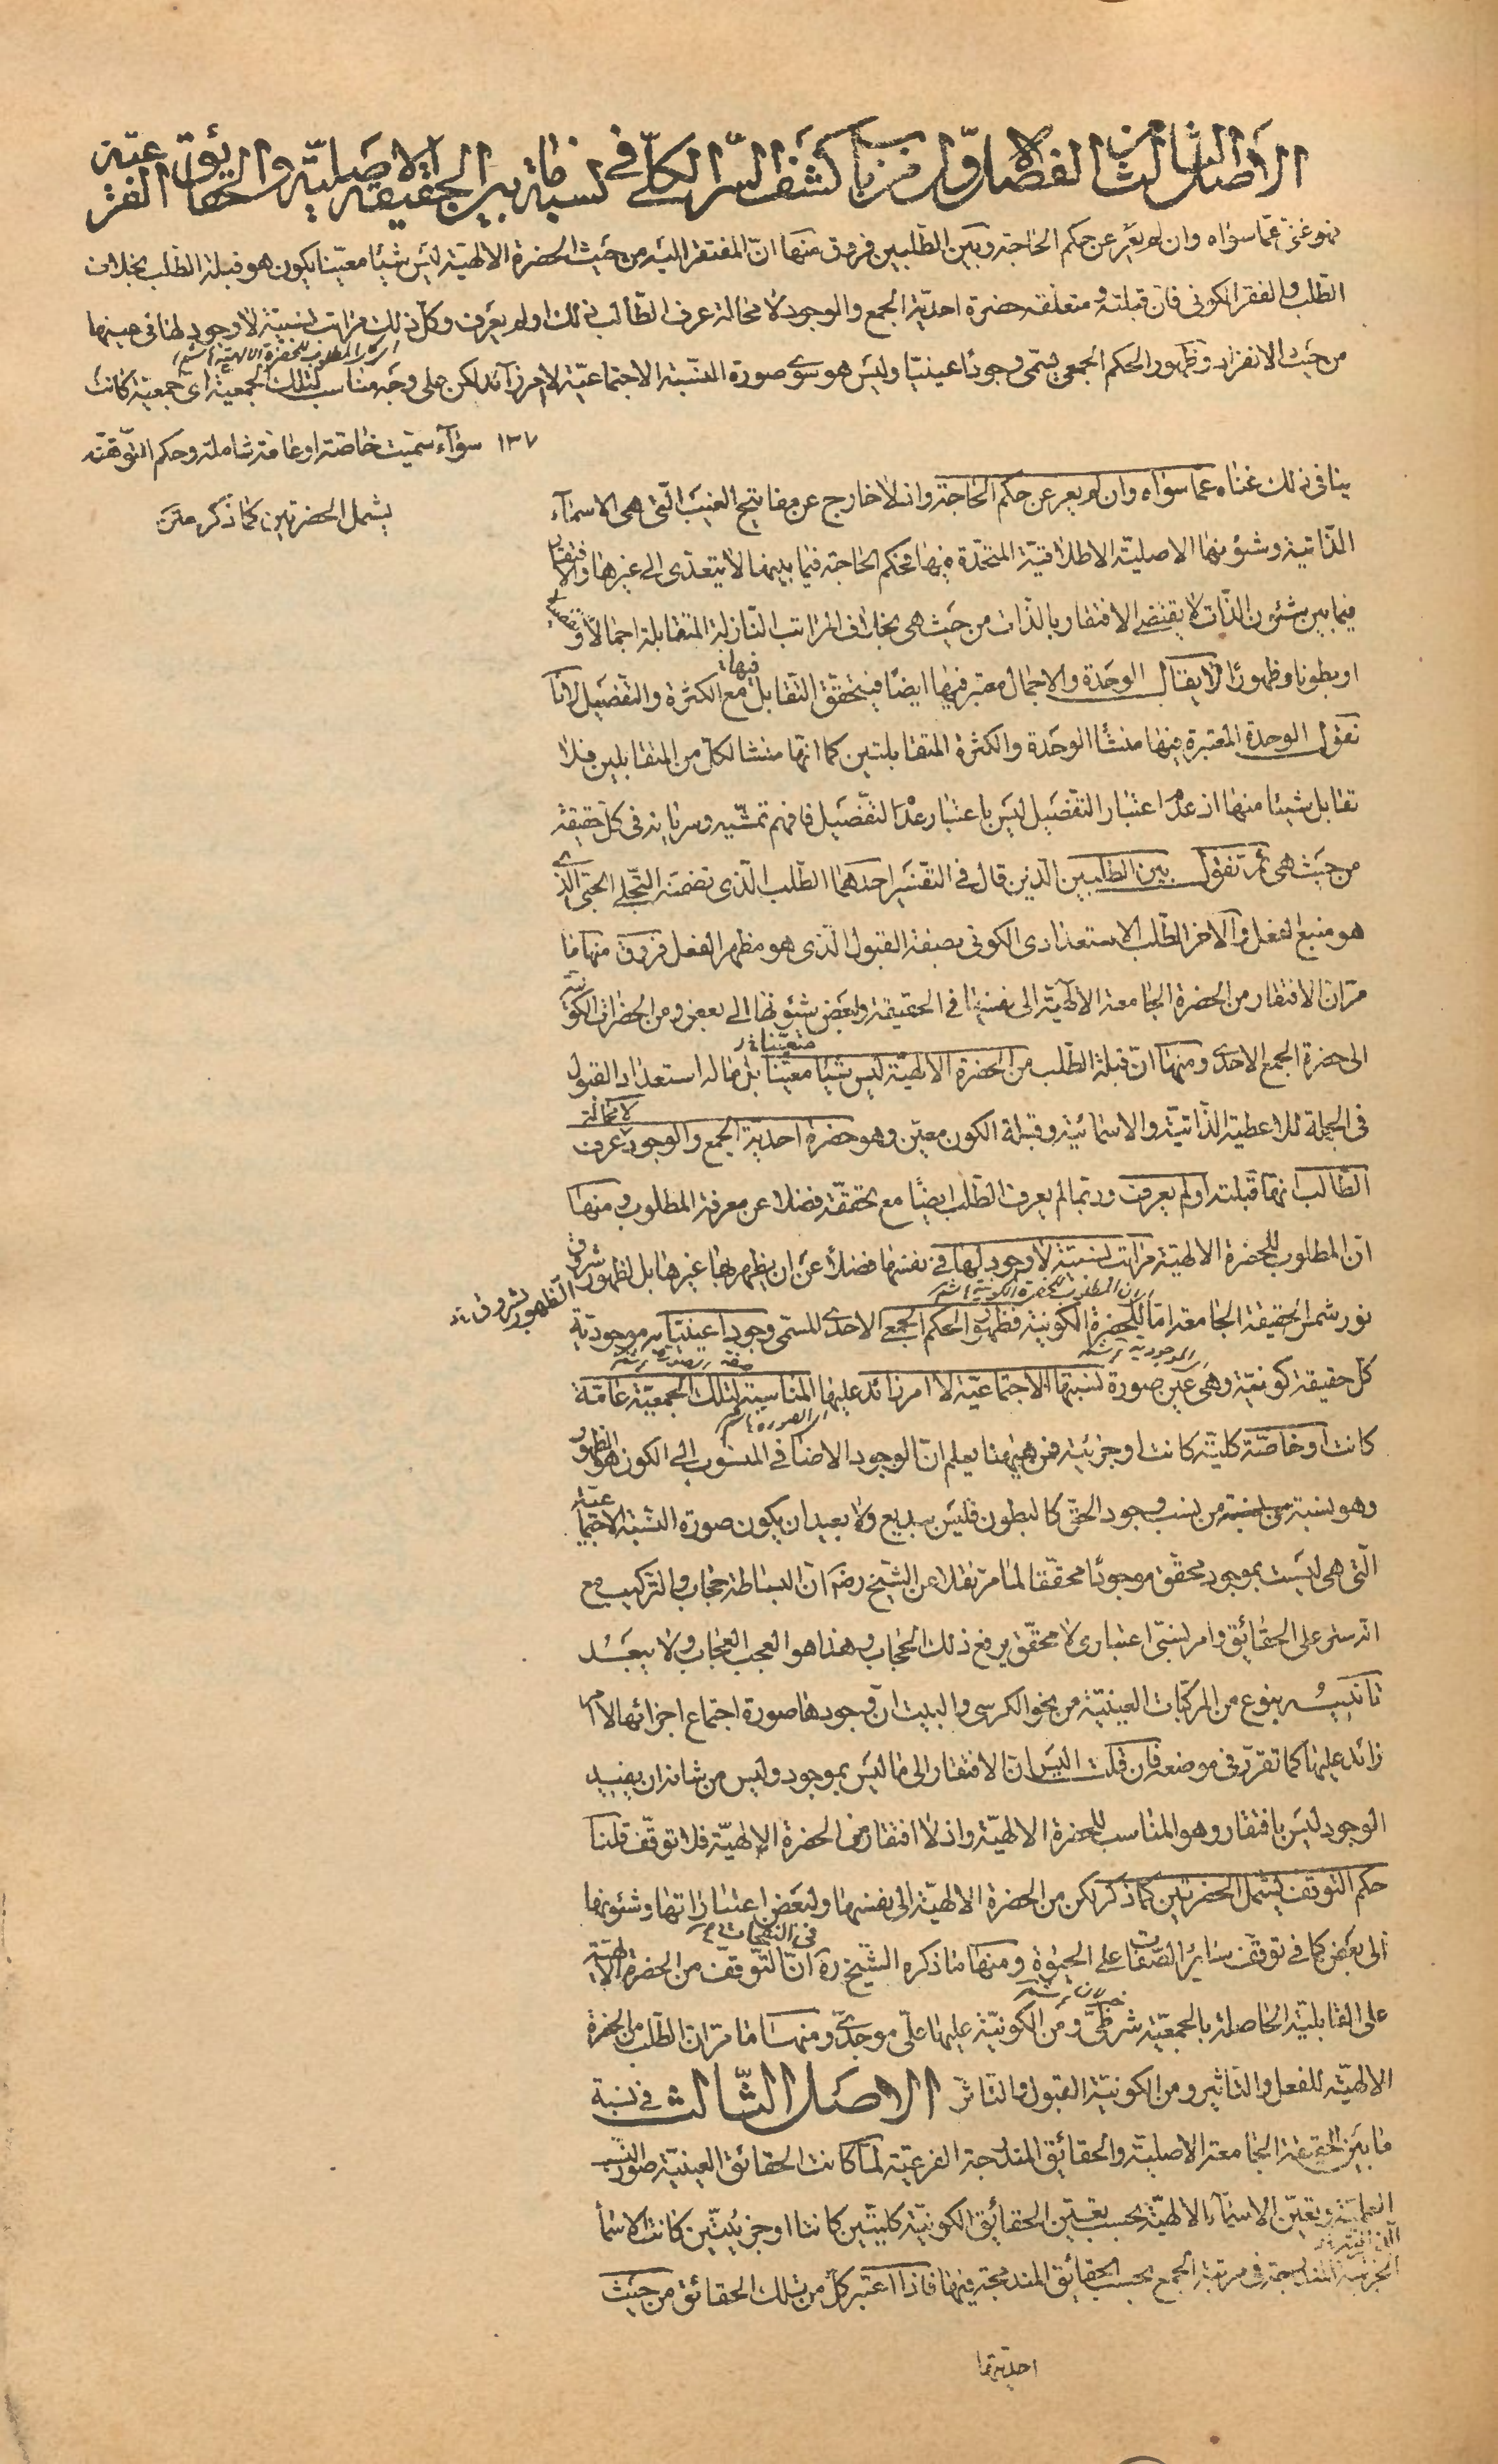 الاصل الثالث من الفصل الاول من باب كشف السر الكلى فى نسبة ما بين الحقيقة الاصلية والحقايق الفرعية
فهو غنى عما سواه وان لم يعر عن حكم الحاجة وبين الطلبين فروق منها ان المفتقر اليه من حيث الحضرة الالهية ليس شيئا معينا يكون هو قبلة الطلب بخلاف
الطلب والفقر الكونى فان قبلته ومتعلقه حضرة احدية الجمع والوجود لا محالة عرف الطالب ذلك او لم يعرف وكل ذلك مراتب نسبية لا وجود لها فى عينها
اى كان المطلوب للحضرة الالهية
من حيث الانفراد وظهور الحكم الجمعى يسمى وجودا عينيا وليس هو سوى صورة النسبة الاجتماعية لا امر زائد لكن على وجه مناسب لتلك الجمعية اى جمعية كانت
١٣٧ سوآء سميت خاصة او عامة شاملة وحكم التوقف
يشمل الحضرتين كما ذكر متن
ينافى ذلك غناه عما سواه وان لم يعر عن حكم الحاجة واذ لا خارج عن مفاتيح الغيب التى هى الاسمآء
الذاتية وشؤنها الاصلية الاطلاقية المتحدة فيها فحكم الحاجة فيما بينها لا يتعدى الى غيرها والافتقار
فيما بين شئون الذات لا يقتضى الافتقار بالذات من حيث هى بخلاف المراتب النازلة المتقابلة اجمالا وتفصيلا
او بطونا وظهورا لا يقال الوحدة والاجمال معتبر فيها ايضا فيتحقق التقابل فيها مع الكثرة والتفصيل لانا
نقول الوحدة المعتبرة فيها منشأ الوحدة والكثرة المتقابلتين كما انها منشا لكل من المتقابلين فلا
تقابل شيئا منها اذ عدم اعتبار التفصيل ليس باعتبار عدم التفصيل فافهم تمشيه وسريانه فى كل حقيقة
من حيث هى ثم نقول بين الطلبين الذين قال فى التفسير احدهما الطلب الذى تضمنه التجلى الحبى الذى
هو منبع الفعل والآخر الطلب الاستعدادى الكونى بصفة القبول الذى هو مظهر الفعل فروق منها ما
مر ان الافتقار من الحضرة الجامعة الالهية الى نفسها فى الحقيقة ولبعض شئونها الى بعض ومن الحضرات الكونية
الى حضرة الجمع الاحدى ومنها ان قبلة الطلب من الحضرة الالهية ليس شيا معينا متعينا بل ما له استعداد القبول
فى الجملة للاعطية الذاتية والاسمائية وقبلة الكون معين وهو حضرة احدية الجمع والوجود لا محالة عرف
الطالب انها قبلته او لم يعرف وربما لم يعرف الطلب ايضا مع تحققه فضلا عن معرفة المطلوب ومنها
ان المطلوب للحضرة الالهية مراتب نسبية لا وجود لها فى نفسها فضلا عن ان يظهر بها غيرها بل لظهور شروق
الظهور بشروق
اى ان المطلوب للحضرة الكونية
نور شمس الحقيقة الجامعة اما للحضرة الكونية فظهور الحكم الجمعى الاحدى المسمى وجودا عينيا به موجودية
كل حقيقة كونية وهى عين صورة نسبتها الاجتماعية لا امر زائد عليها المناسبة لتلك الجمعية عامة
كانت او خاصة كلية كانت او جزئية فمن هيهنا يعلم ان الوجود الاضافى المنسوب الى الكون هو الظهور
وهو نسبة من نسب وجود الحق كالبطون فليس ببديع ولا بعيد ان يكون صورة النسبة الاجتماعية
التى هى ليست بموجود محقق موجودا محققا لما مر نقلا عن الشيخ رضه ان البساطة حجاب والتركيب مع
انه ستر على الحقائق وامر نسبى اعتبارى لا محقق يرفع ذلك الحجاب وهذا هو العجب العجاب ولا يبعد
تانيسه بنوع من المركبات العينية من نحو الكرسى والبيت ان وجودها صورة اجتماع اجزائها لا امر
زائد عليها كما تقرر فى موضعه فان قلت اليس ان الافتقار الى ما ليس بموجود وليس من شانه ان يفيد
الوجود ليس بافتقار وهو المناسب للحضرة الالهية واذ لا افتقار من الحضرة الالهية فلا توقف قلنا
حكم التوقف يشمل الحضرتين كما ذكر لكن من الحضرة الالهية الى نفسها ولبعض اعتباراتها وشئونها
الى بعض كما فى توقف سائر الصفات على الحيوة ومنها ما ذكره الشيخ ره فى النفحات ان التوقف من الحضرة الالهية
على القابلية الحاصلة بالجمعية شرطى ومن الكونية عليها على موجدى ومنها ما مر ان الطلب من الحضرة
الالهية للفعل والتاثير ومن الكونية القبول والتاثر الاصل الثالث فى نسبة
ما بين الحقيقة الجامعة الاصلية والحقائق المندرجة الفرعية لما كانت الحقائق العينية صور النسب
العلمية وتعين الاسمآء الالهية بحسب تعين الحقائق الكونية كليتين كانتا او جزئيتين كانت الاسما
الجزئية المندمجة فى مرتبة الجمع بحسب الحقائق المندمجة فيها فاذا اعتبر كل من تلك الحقائق من حيث
احديتها